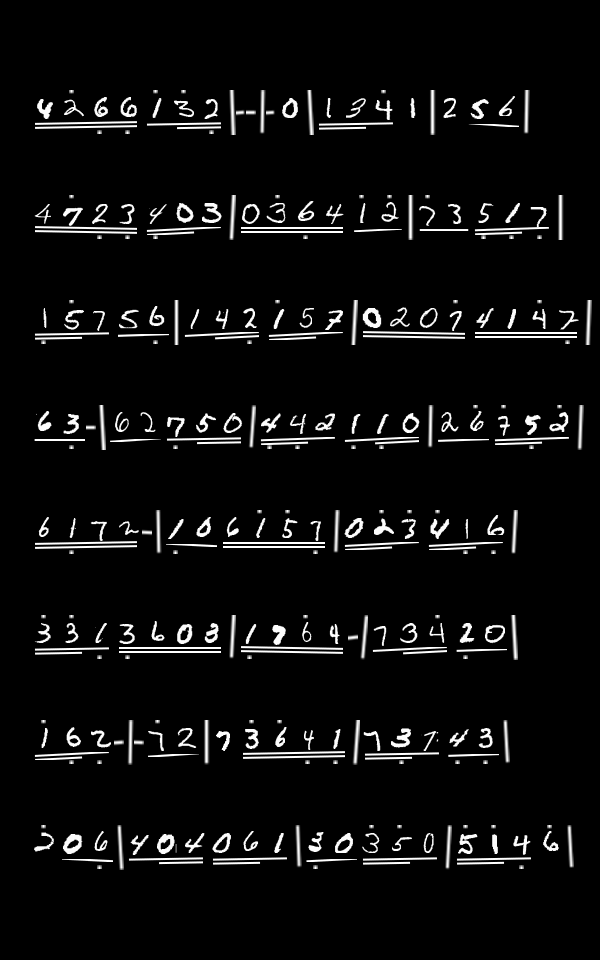 4266132|--|-0|1341|256|
4723403|036412|73517|
15756|142157|02074147|
63-|62750|442110|26752|
6172-|106157|023416|
3313603|1764-|73420|
162-|-72|73641|73743|
206|404061|30350|5146|